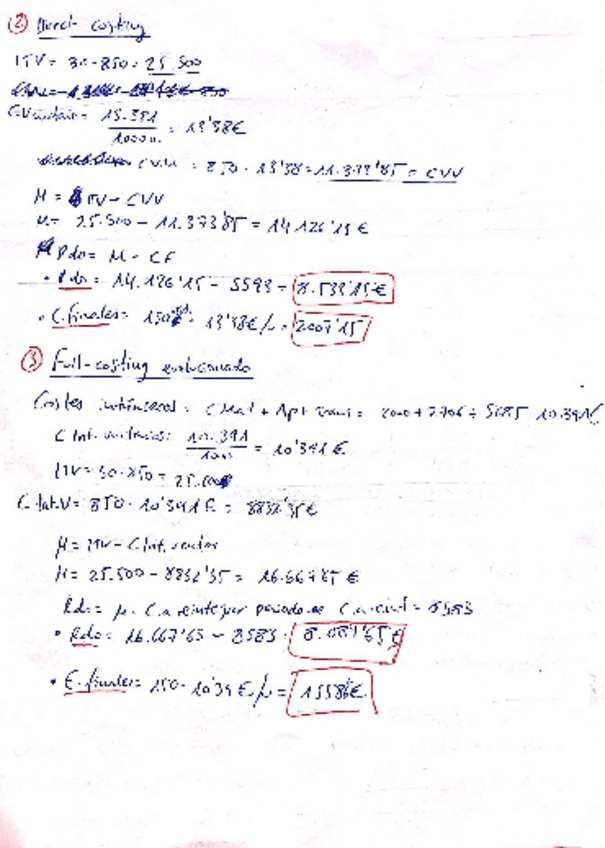 ② Direct costing
ITV = 30·850 = 25.500
CV unitario = 13.381 / 1000 u. = 13'38€
CVV = 850 · 13'38 = 11.373'85 = CVV
M = ITV - CVV
M = 25.500 - 11.373'85 = 14.126'15 €
Rdo = M - CF
• Rdo = 14.126'15 - 5593 = 8.533'15 €
• E. finales = 150 · 13'38€/u = 2007'15
③ Full-costing evolucionado
Costes intrínsecos = C Mat + Apt trans = 2000 + 2.706 + 5685 10.391€
C Int. unitarios: 10.391 / 1000 = 10'391 €
ITV = 30·850 = 25.500
C. Int. V = 850 · 10'391 € = 8832'35€
M = ITV - C Int. vendor
M = 25.500 - 8832'35 = 16.667'65 €
Rdo = M - C. a reinteg por periodo C. a reint = 8583
• Rdo = 16.667'65 - 8583 = 8.084'65 €
• E. finales = 150 · 10'39 €/u = 1558'6€